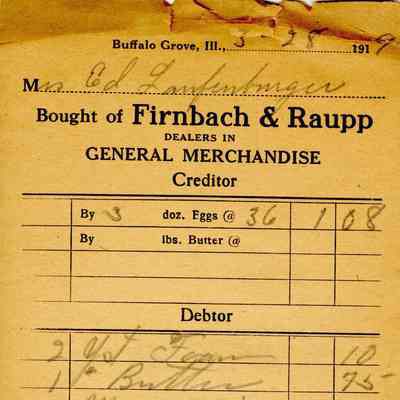 Buffalo Grove, Ill., 3-28 1919
Mrs Ed Laufenburger
Bought of Firnbach & Raupp
DEALERS IN
GENERAL MERCHANDISE
Creditor
By 3 doz. Eggs @ 36 1 08
By lbs. Butter @
Debtor
2 Yst Foam 10
1# Butter 75